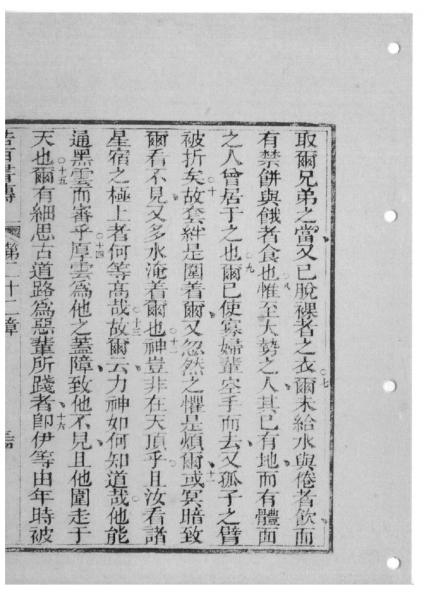 取爾兄弟之當又已脫裸者之衣爾未給水與倦者飲而
七
有禁餅與餓者食也惟至大勢之人其已有地而有體面
八
之人曾居于之也爾已使寡婦輩空手而去又孤子之臂
九
被折矣故套絆是圍着爾又忽然之懼是煩爾或冥暗致
十
爾看不見又多水淹着爾也神豈非在天頂乎且汝看諸
十一
十二
星宿之極上者何等高哉故爾云力神如何知道哉他能
十三
通黑雲而審乎厚雲爲他之蓋障致他不見且他圍走于
十四
天也爾有細思古道路爲惡輩所踐者即伊等由年時被
十五
十六
若百書傳 第二十二章